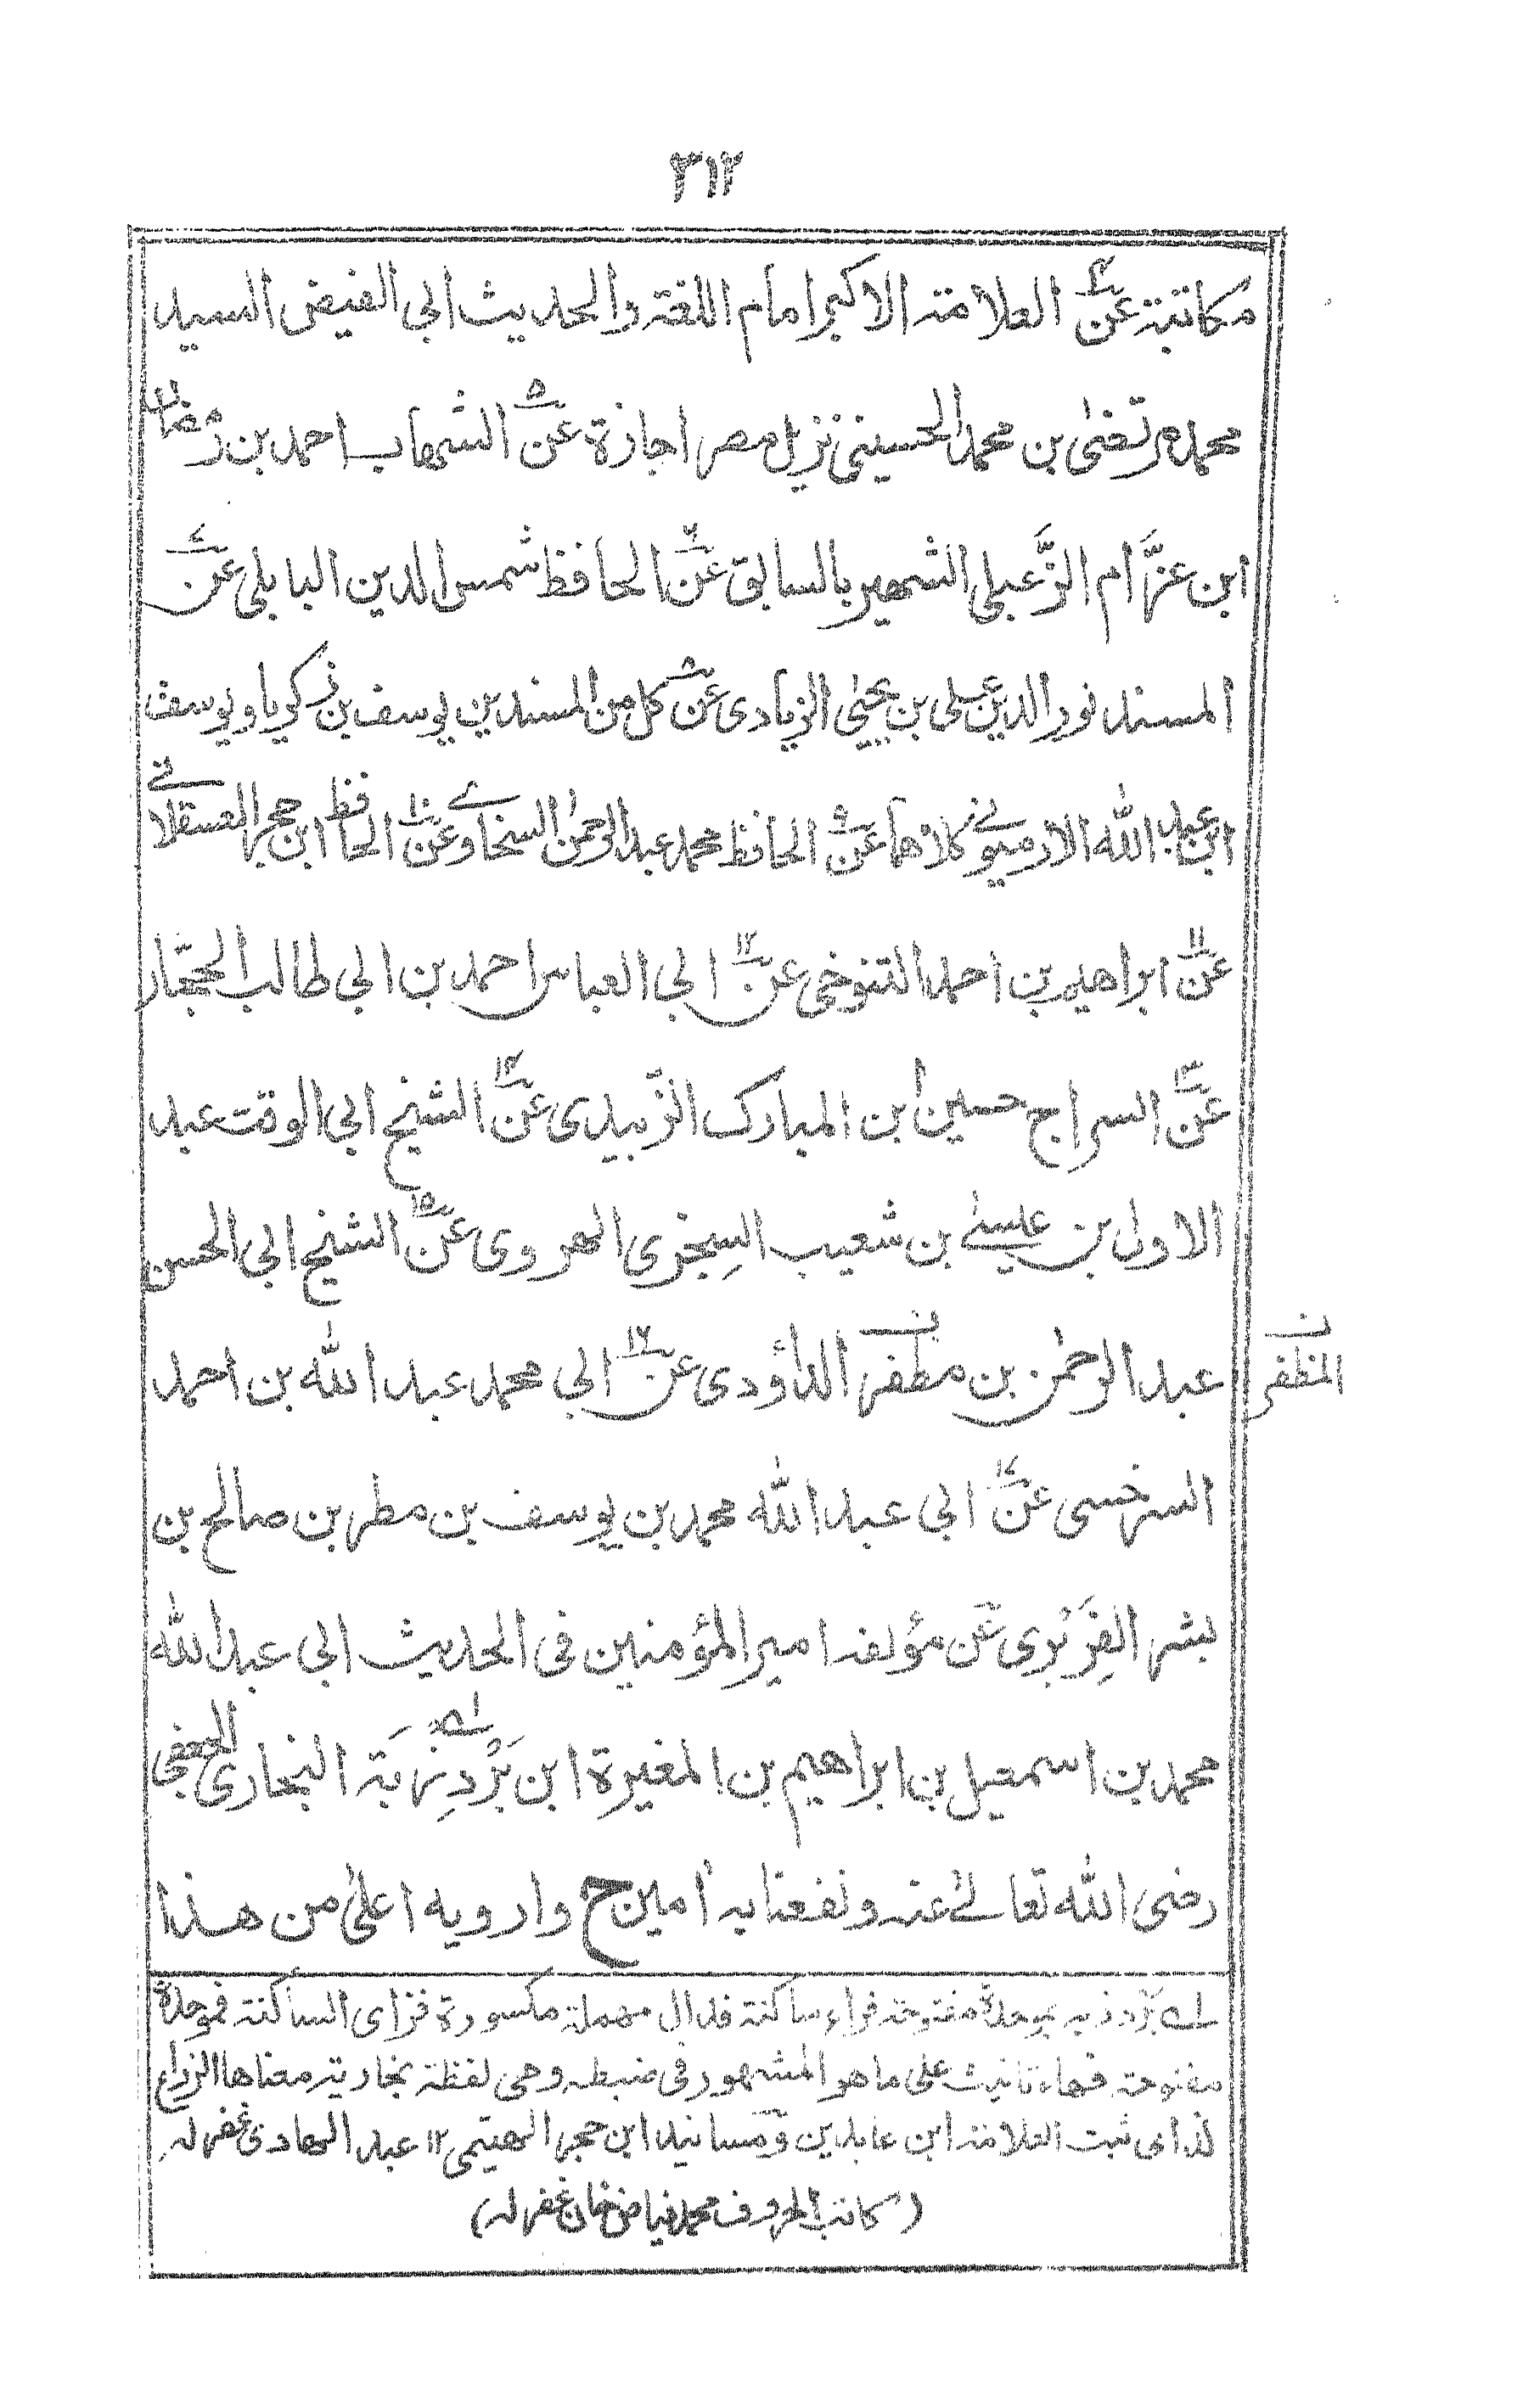 ٣١٢
مكاتبة عن٤ العلامة الاكبر امام اللغة والحديث ابي الفيض السيد
محمد مرتضىٰ بن محمد الحسيني نزيل مصر اجازة عن٥ الشهاب احمد بن رمضان
ابن عزَّام الزَّعبلي الشهير بالسابق عن٦ الحافظ شمس الدين البابلي عن٧
المسند نور الدين علي بن يحيىٰ الزيادي عن٨ كل من المسندين يوسف بن زكريا ويوسف
ابن عبد الله الارميوني كلاهما عن٩ الحافظ محمد عبد الرحمٰن السخاوي عن١٠ الحافظ ابن حجر العسقلاني
عن١١ ابراهيم بن احمد التنوخي عن١٢ ابي العباس احمد بن ابي طالب الحجّار
عن١٣ السراج حسين ابن المبارك الزّبيدي عن١٤ الشيخ ابي الوقت عبد
الاول بن عيسىٰ بن شعيب السِجزي الهروي عن١٥ الشيخ ابي الحسن
عبد الرحمٰن بن مظفرن الداؤدي عن١٦ ابي محمد عبد الله بن احمد
ن المظفر
السرخسي عن١٧ ابي عبد الله محمد بن يوسف بن مطر بن صالح بن
بشر الفِرَبْري عن مؤلفه امير المؤمنين في الحديث ابي عبد الله
محمد بن اسمعيل بن ابراهيم بن المغيرة ابن بَرْدِزبَة له البخاري الجعفي
رضي الله تعالىٰ عنه ونفعنا به اٰمين ح وارويه اعلىٰ من هذا
له بَرْدزبه بموحدة مفتوحة فراء ساكنة فدال مهملة مكسورة فزاي الساكنة فموحدة
مفتوحة فهاء تانيث على ما هو المشهور في ضبطه وهي لفظة بخارية معناها الزراع
كذا في ثبت العلامة ابن عابدين ومسانيد ابن حجر الهيتمي ١٢ عبد الهادي غفر له
(كاتب الحروف محمد فياض خان غفر له)